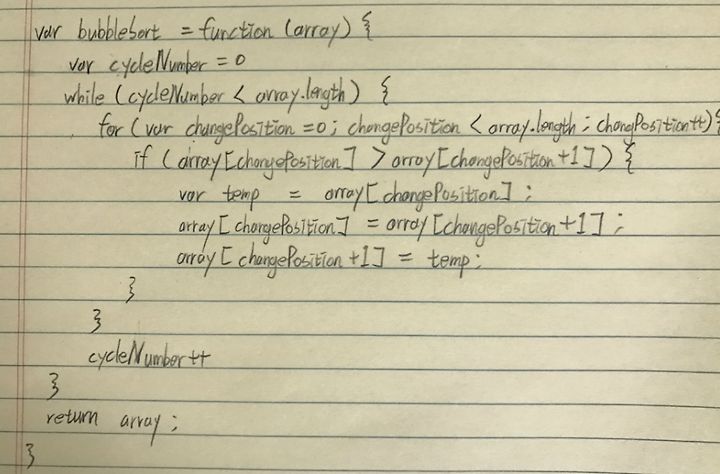 var bubbleSort = function (array) {
var cycleNumber = 0
while (cycleNumber < array.length) {
for (var changePosition = 0; changePosition < array.length; changPosition++) {
if (array[changePosition] > array[changePosition+1]) {
var temp = array[changePosition];
array[changePosition] = array[changePosition+1];
array[changePosition+1] = temp;
}
}
cycleNumber++
}
return array;
}